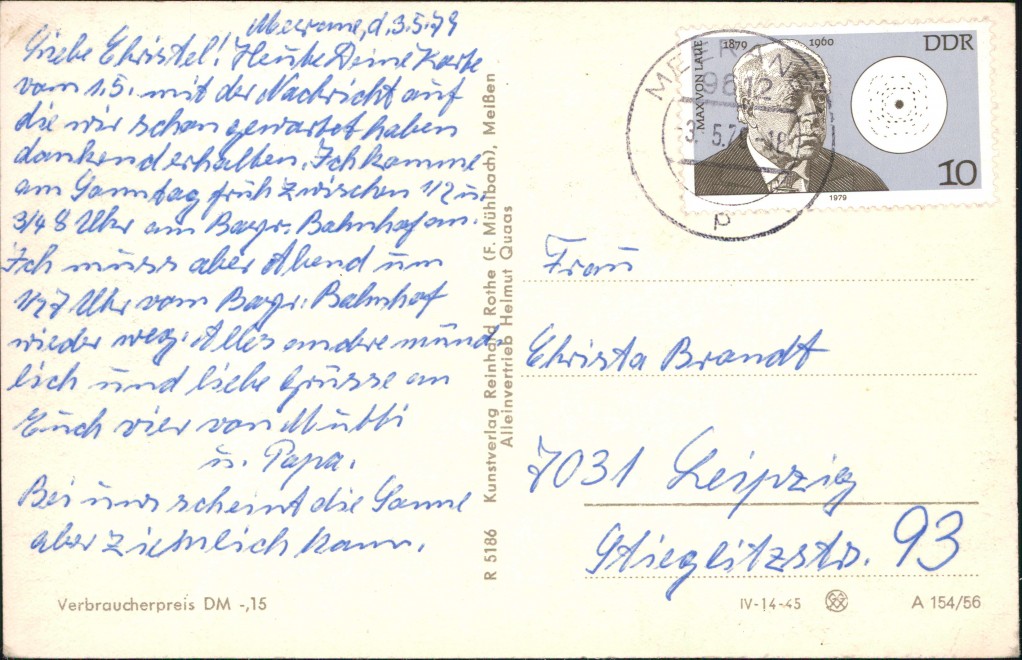 Meerane, d. 3.5.79
Liebe Christel! Heute Deine Karte
vom 1.5. mit der Nachricht auf
die wir schon gewartet haben
dankend erhalten. Ich komme
am Sonntag früh zwischen 1/2 u.
3/4 8 Uhr am Bayr. Bahnhof an.
Ich muss aber Abend um
1/2 7 Uhr vom Bayr. Bahnhof
wieder weg. Alles andere münd-
lich und liebe Grüsse an
Euch vier von Mutti
u. Papa.
Bei uns scheint die Sonne
aber ziemlich
Verbraucherpreis DM -,15
R 5186 Kunstverlag Reinhard Rothe (F. Mühlbach), Meißen
Alleinvertrieb Helmut Quaas
MAX VON LAUE
1879 1960
DDR
10
1979
9612
Frau
Christa Brandt
7031 Leipzig
Stieglitzstr. 93
IV-14-45
A 154/56